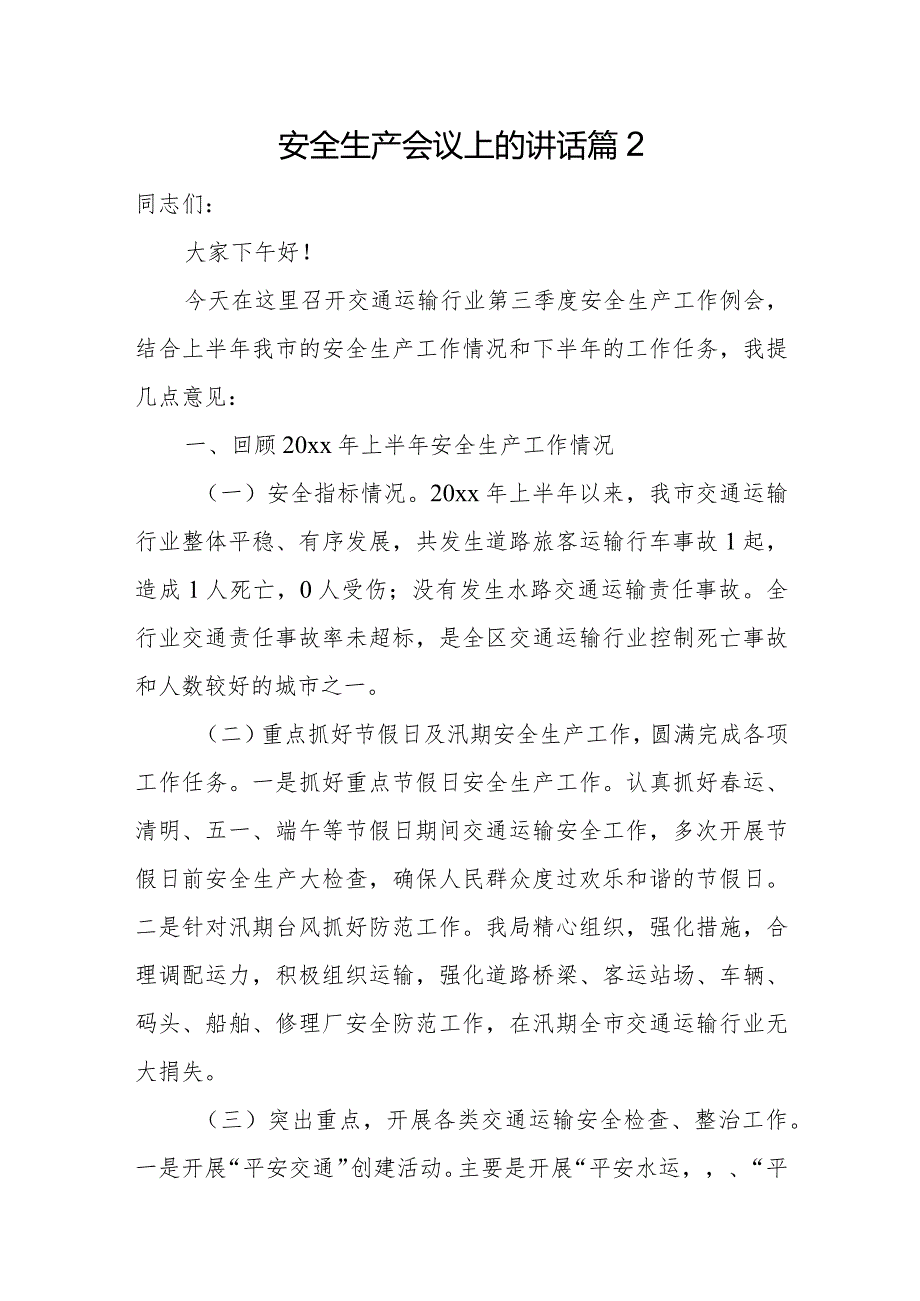 安全生产会议上的讲话篇2
同志们：
大家下午好！
今天在这里召开交通运输行业第三季度安全生产工作例会，
结合上半年我市的安全生产工作情况和下半年的工作任务，我提
几点意见：
一、回顾20xx年上半年安全生产工作情况
（一）安全指标情况。20xx年上半年以来，我市交通运输
行业整体平稳、有序发展，共发生道路旅客运输行车事故1起，
造成1人死亡，0人受伤；没有发生水路交通运输责任事故。全
行业交通责任事故率未超标，是全区交通运输行业控制死亡事故
和人数较好的城市之一。
（二）重点抓好节假日及汛期安全生产工作，圆满完成各项
工作任务。一是抓好重点节假日安全生产工作。认真抓好春运、
清明、五一、端午等节假日期间交通运输安全工作，多次开展节
假日前安全生产大检查，确保人民群众度过欢乐和谐的节假日。
二是针对汛期台风抓好防范工作。我局精心组织，强化措施，合
理调配运力，积极组织运输，强化道路桥梁、客运站场、车辆、
码头、船舶、修理厂安全防范工作，在汛期全市交通运输行业无
大捐失。
（三）突出重点，开展各类交通运输安全检查、整治工作。
一是开展“平安交通”创建活动。主要是开展“平安水运，，、“平